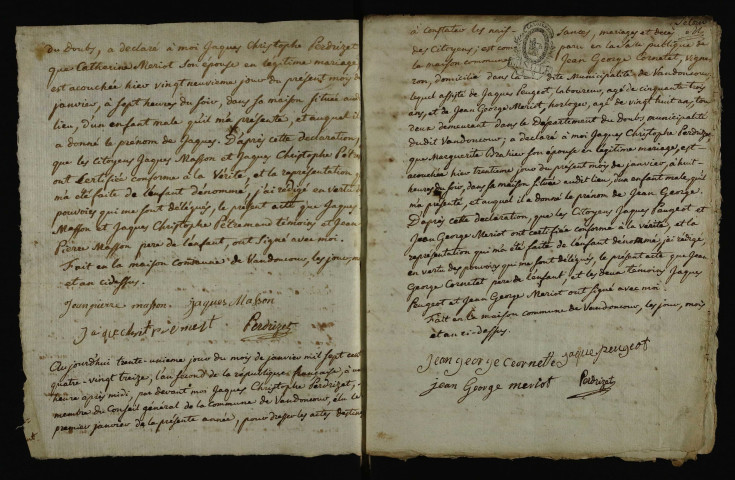 du doubs, a declaré à moi Jaques Christophe Perdrizet
que Catherine Meriot son épouse en légitime mariage
est acouchée hier vingt neuvieme jour du présent mois de
janvier, à sept heures du soir, dans sa maison située audit
lieu, d'un enfant male qu'il m'a présenté, et auquel il
a donné le prénom de Jaques. D'après cette déclaration,
que les citoyens Jaques Masson et Jaques Christophe
ont certifiée conforme à la vérité, et la représentation
m'a été faite de l'enfant dénommé, j'ai rédigé en vertu des
pouvoirs qui me sont délégués, le présent acte que Jaques
Masson et Jaques Christophe Petremand témoins et Jean
Pierre Masson pere de l'enfant, ont signé avec moi.
Fait en la maison commune de Vandoncour, les jour, mois
et an cidessus.
Jean pierre masson. jaques Masson
Perdrizet
Aujourd'hui trente-unieme jour du mois de janvier mil sept cent
quatre-vingt treize, l'an second de la république française, à une
heure après midi, par devant moi Jaques Christophe Perdrizet,
membre du Conseil général de la Commune de Vandoncour, élu le
premier janvier de la présente année, pour dresser les actes destinés
à constater les naissances, mariages et décès
des Citoyens; est comparu en la salle publique de
la maison commune Jean George Cornetet, vigne-
ron, domicilié dans la dite Municipalité de Vandoncour,
lequel assisté de Jaques Peugeot, laboureur, agé de cinquante trois
ans, et de Jean George Meriot, horloger, agé de vingt huit ans, tous
deux demeurant dans le Département du doubs, municipalité
dudit Vandoncour; a déclaré à moi Jaques Christophe Perdrizet
que Marguerite Brahier son épouse en légitime mariage, est
acouchée hier trentieme jour du présent mois de janvier, à huit
heures du soir, dans sa maison située audit lieu, d'un enfant male, qu'il
m'a présenté, et auquel il a donné le prénom de Jean George.
D'après cette déclaration, que les Citoyens Jaques Peugeot et
Jean George Meriot ont certifiée conforme à la vérité, et la
représentation qui m'a été faite de l'enfant dénommé, j'ai rédigé,
en vertu des pouvoirs qui me sont délégués, le présent acte que Jean
George Cornetet pere de l'enfant, et les deux témoins Jaques
Peugeot et Jean George Meriot ont signé avec moi.
Fait en la maison commune de Vandoncour, les jour, mois
et an ci-dessus.
Jean george jaque peugeot
jean George meriot Perdrizet